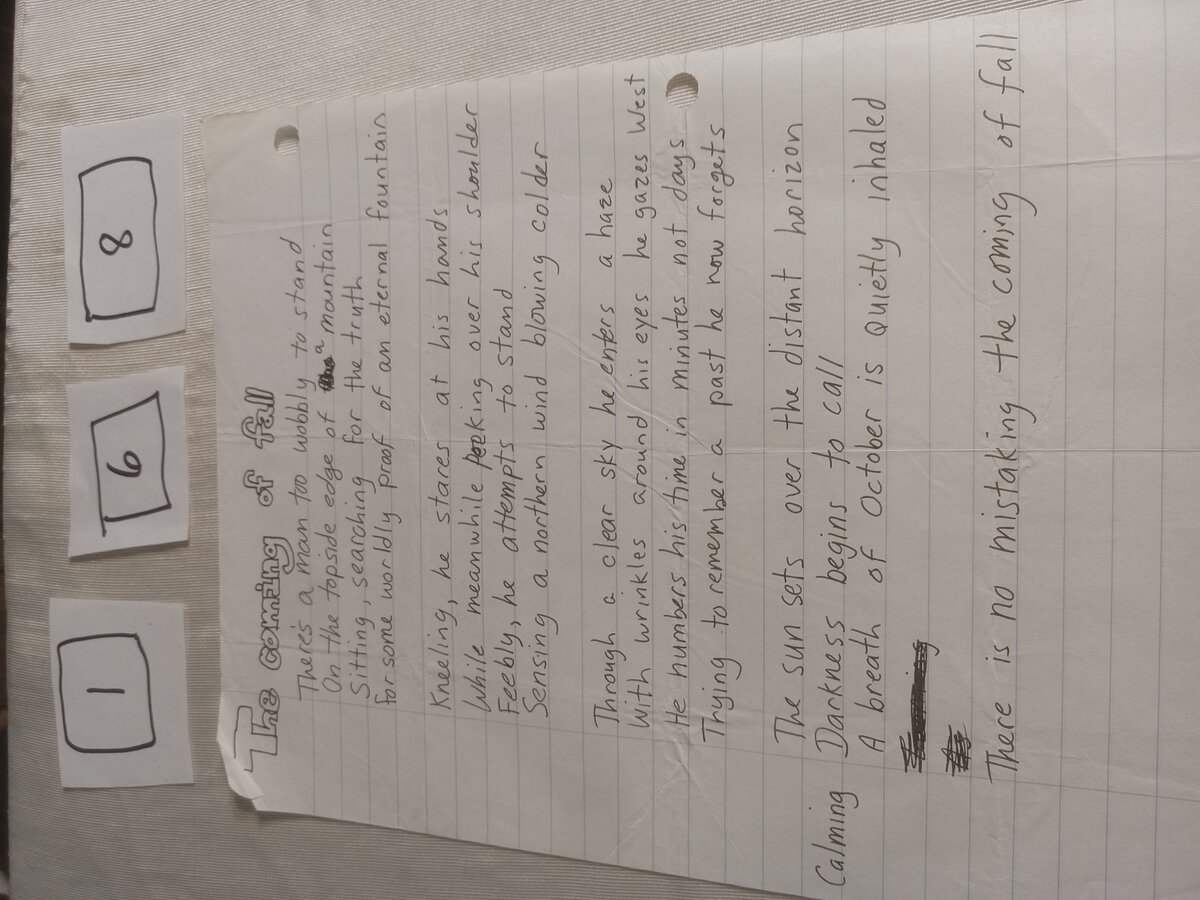 1
6
8
The coming of fall
There's a man too wobbly to stand
On the topside edge of a mountain
Sitting, searching for the truth
For some worldly proof of an eternal fountain
Kneeling, he stares at his hands
While meanwhile peeking over his shoulder
Feebly, he attempts to stand
Sensing a northern wind blowing colder
Through a clear sky he enters a haze
With wrinkles around his eyes he gazes West
He numbers his time in minutes not days
Trying to remember a past he now forgets
The sun sets over the distant horizon
Calming Darkness begins to call
A breath of October is quietly inhaled
There is no mistaking the coming of fall